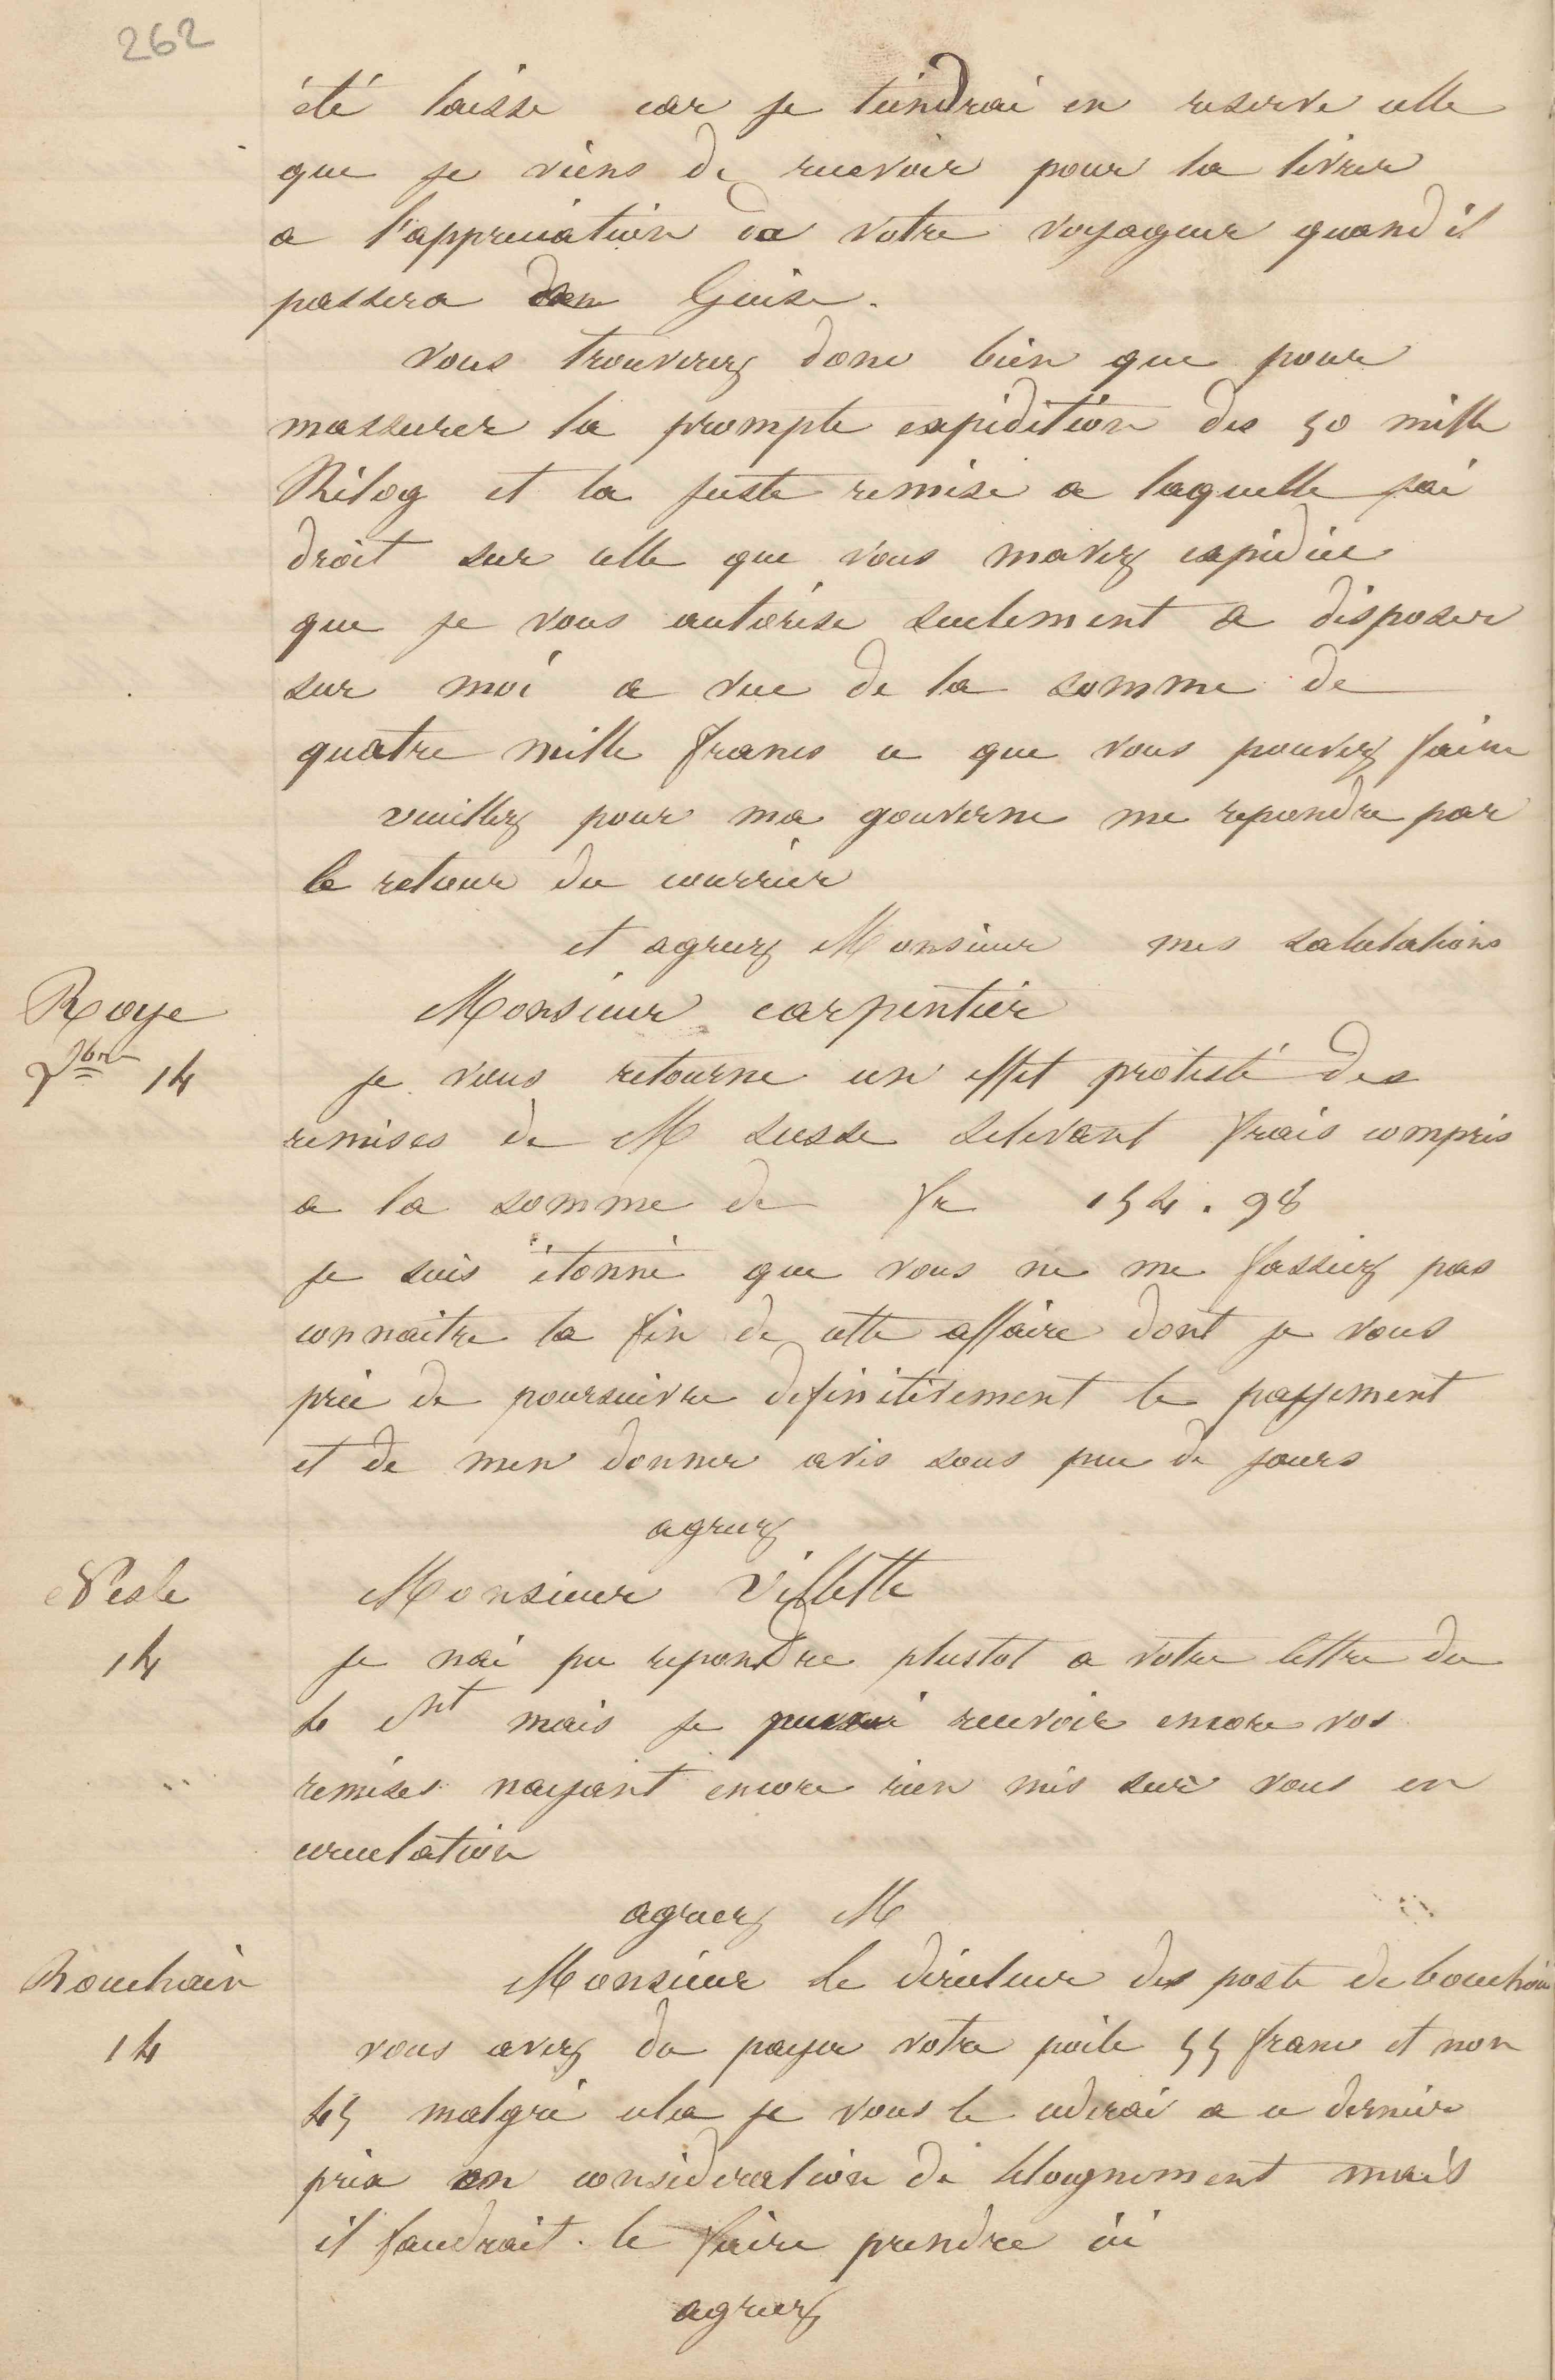 262
été laisse car je tiendrai en reserve celle
que je viens de recevoir pour la livrer
a l'appreciation de votre voyageur quand il
passera Guise.
vous trouverez donc bien que pour
massurer la prompte expidition des 50 mille
Kilog et la juste remise a laquelle jai
droit sur celle que vous mavez expidiée
que je vous autorise seulement a disposer
sur moi a vue de la somme de
quatre mille francs ce que vous pouvez faire
veuillez pour ma gouverne me repondre par
le retour du courrier
et agreez Monsieur mes salutations
Roye
Monsieur carpentier
14
je vous retourne un effet protesté des
remises de M susse selevant frais compris
a la somme de fr 154.98
je suis étonné que vous ne me fassiez pas
connaitre la fin de cette affaire dont je vous
prie de poursuivre definitivement le payement
et de men donner avis sous peu de jours
agreez
Nesle
Monsieur Villette
14
je nai pu repondre plustot a votre lettre du
4 Ct mais je recevoir encore vos
remises nayant encore rien mis sur vous en
circulation
agreez M
Bouchain
Monsieur le directeur des poste de bouchain
14
vous avez du payer votre poile 55 franc et non
45 malgré cela je vous le cederai a ce dernier
prix en consideration de leloignement mais
il faudrait le faire prendre ici
agreez